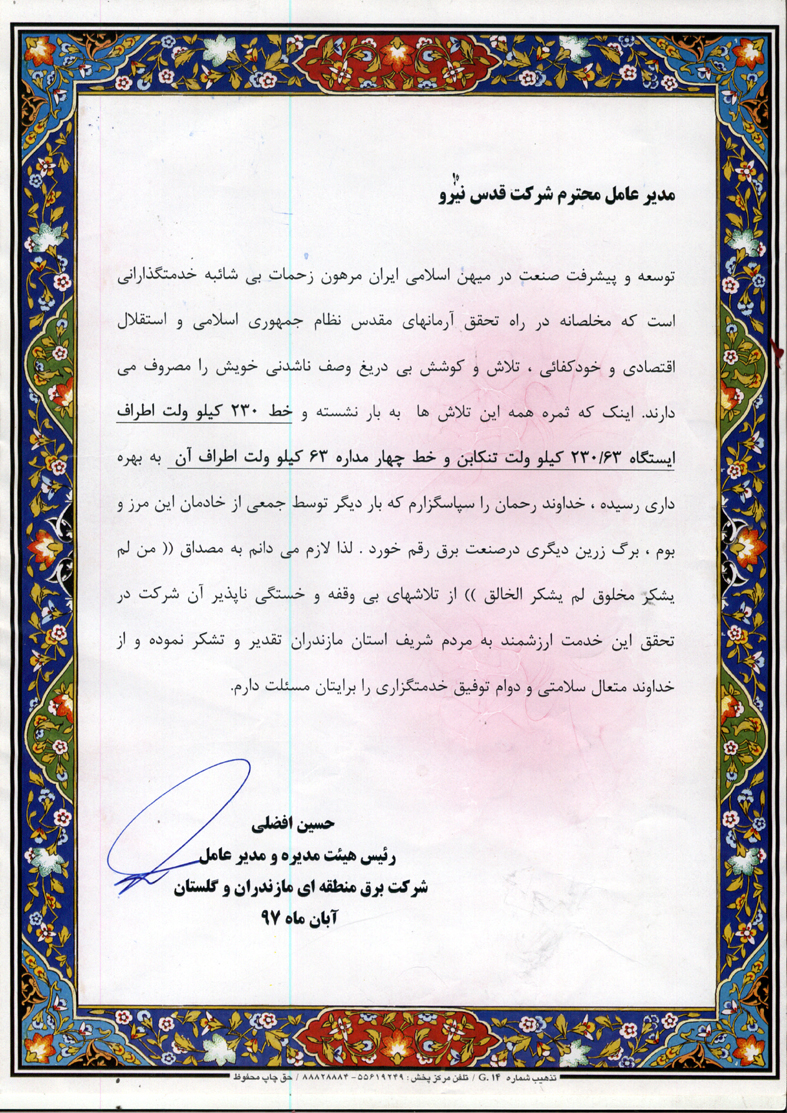 مدیر عامل محترم شرکت قدس نیرو
توسعه و پیشرفت صنعت در میهن اسلامی ایران مرهون زحمات بی شائبه خدمتگذارانی
است که مخلصانه در راه تحقق آرمانهای مقدس نظام جمهوری اسلامی و استقلال
اقتصادی و خودکفائی ، تلاش و کوشش بی دریغ وصف ناشدنی خویش را مصروف می
دارند. اینک که ثمره همه این تلاش ها به بار نشسته و خط ۲۳۰ کیلو ولت اطراف
ایستگاه ۲۳۰/۶۳ کیلو ولت تنکابن و خط چهار مداره ۶۳ کیلو ولت اطراف آن به بهره
داری رسیده ، خداوند رحمان را سپاسگزارم که بار دیگر توسط جمعی از خادمان این مرز و
بوم ، برگ زرین دیگری درصنعت برق رقم خورد . لذا لازم می دانم به مصداق (( من لم
یشکر مخلوق لم یشکر الخالق )) از تلاشهای بی وقفه و خستگی ناپذیر آن شرکت در
تحقق این خدمت ارزشمند به مردم شریف استان مازندران تقدیر و تشکر نموده و از
خداوند متعال سلامتی و دوام توفیق خدمتگزاری را برایتان مسئلت دارم.
حسین افضلی
رئیس هیئت مدیره و مدیر عامل
شرکت برق منطقه ای مازندران و گلستان
آبان ماه ۹۷
تذهیب شماره G. ۱۴ / تلفن مرکز پخش : ۵۵۶۱۹۲۴۹ - ۸۸۸۲۸۸۸۴ / حق چاپ محفوظ